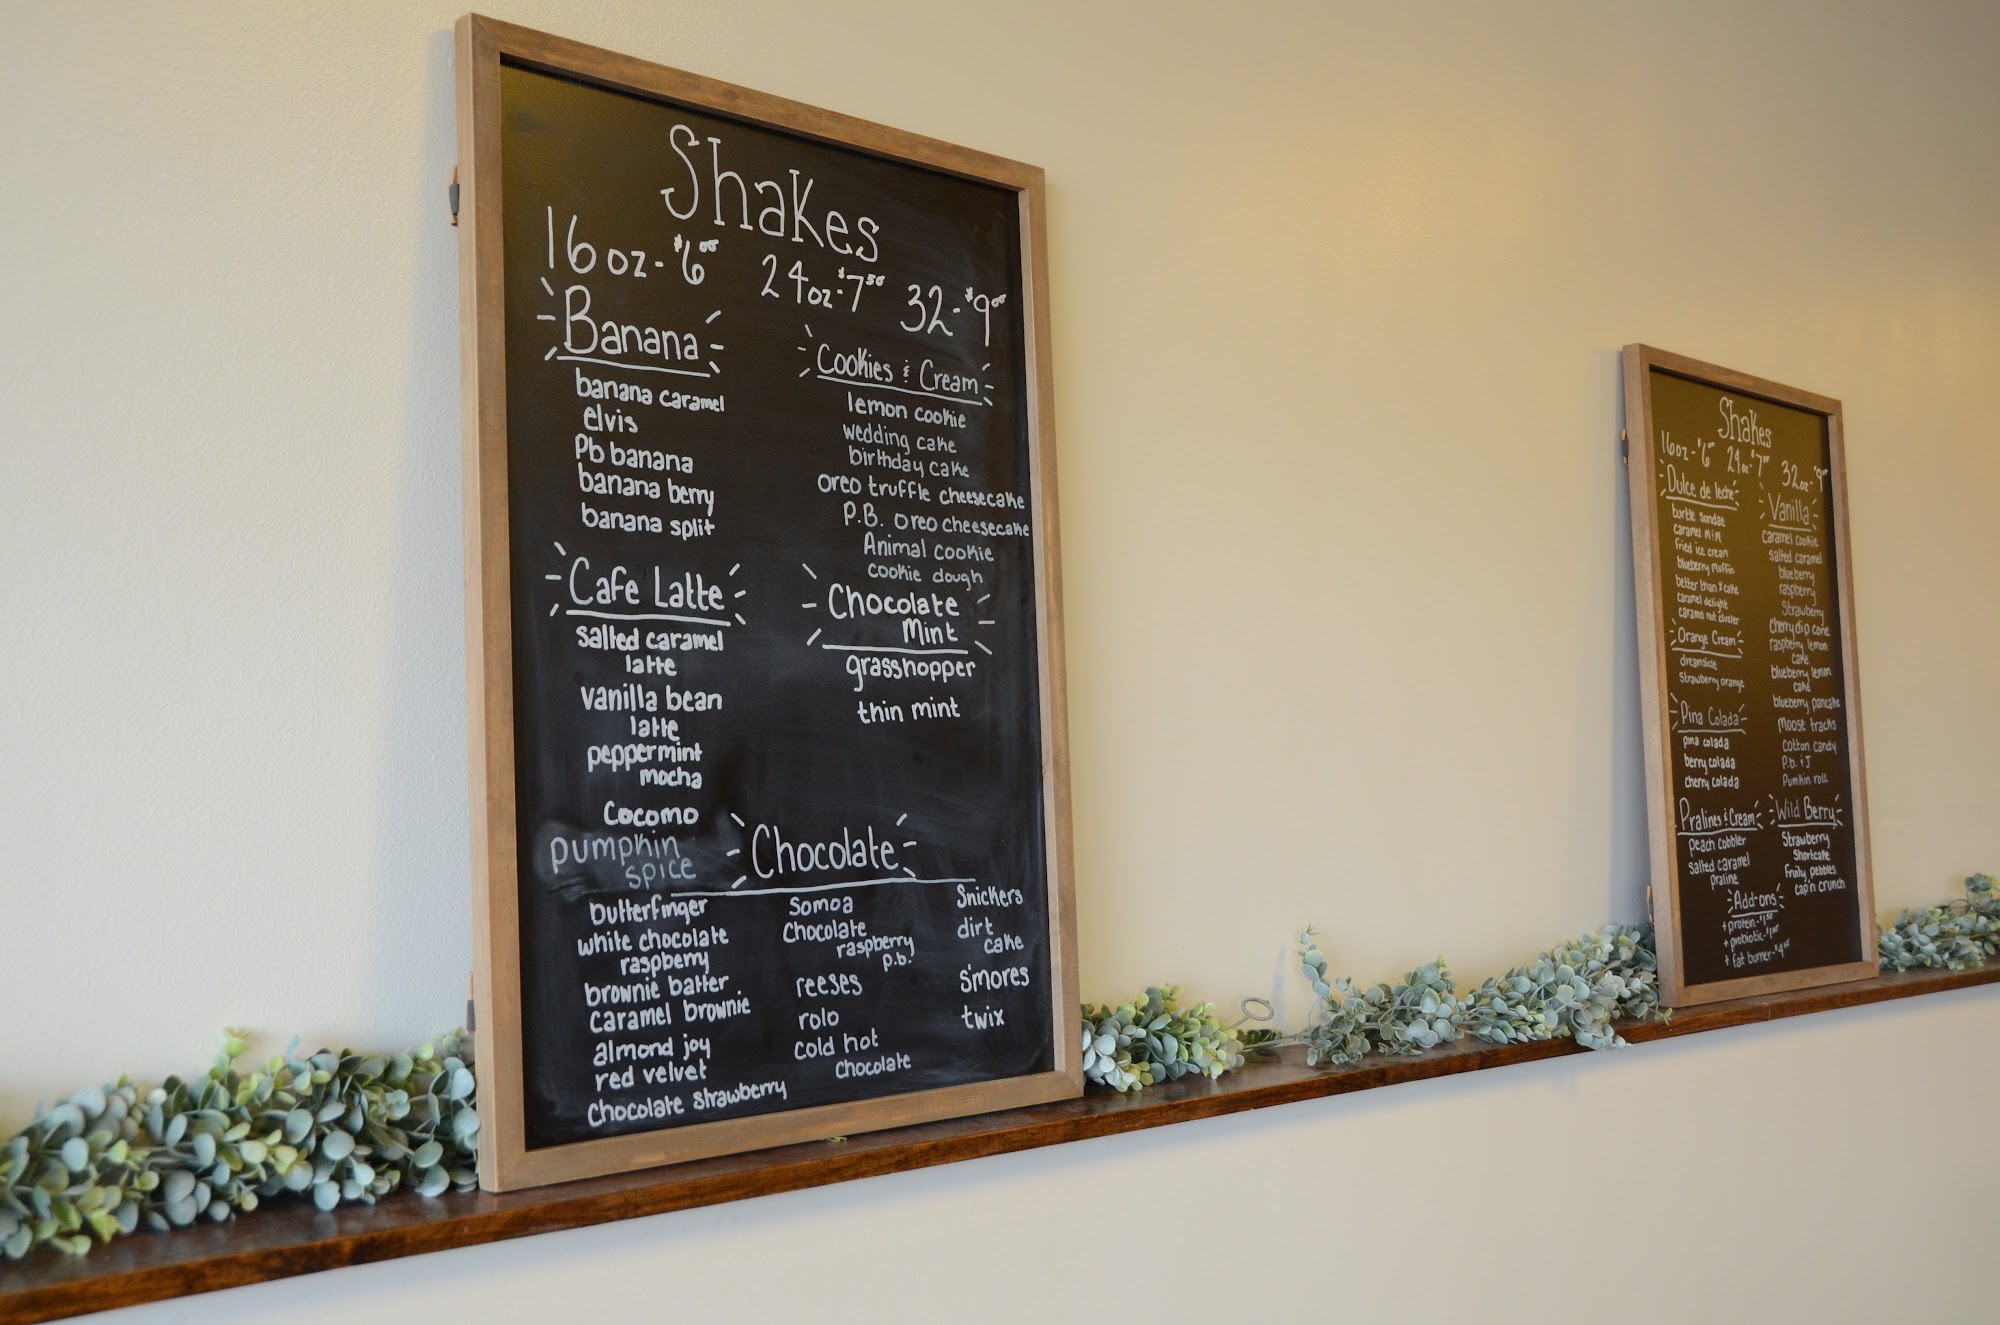 Shakes
16oz-$6.00 24oz-$7.50 32-$9.00
Banana
banana caramel
elvis
Pb banana
banana berry
banana split
Cafe Latte
salted caramel
latte
vanilla bean
latte
peppermint
mocha
Cocomo
pumpkin
spice
Cookies & Cream
lemon cookie
wedding cake
birthday cake
oreo truffle cheesecake
P.B. oreo cheesecake
Animal cookie
cookie dough
Chocolate
Mint
grasshopper
thin mint
Chocolate
butterfinger
white chocolate
raspberry
brownie batter
caramel brownie
almond joy
red velvet
Chocolate strawberry
Somoa
Chocolate
raspberry
p.b.
reeses
rolo
cold hot
chocolate
Snickers
dirt
cake
s'mores
twix
Shakes
16oz-$6.00 24oz-$7.50 32oz-$9.00
Dulce de leche
turtle sundae
caramel m&m
fried ice cream
blueberry muffin
better than x cake
caramel delight
caramel nut cluster
Orange Cream
dreamsicle
strawberry orange
Pina Colada
pina colada
berry colada
cherry colada
Pralines & Cream
peach cobbler
salted caramel
praline
Vanilla
caramel cookie
salted caramel
blueberry
raspberry
strawberry
cherry dip cone
raspberry lemon
cake
blueberry lemon
cake
blueberry pancake
moose tracks
cotton candy
P.b. & J
Pumkin roll
Wild Berry
Strawberry
Shortcake
fruity pebbles
cap'n crunch
Add-ons
+ protein-$1.50
+ probiotic-$1.00
+ fat burner-$4.00